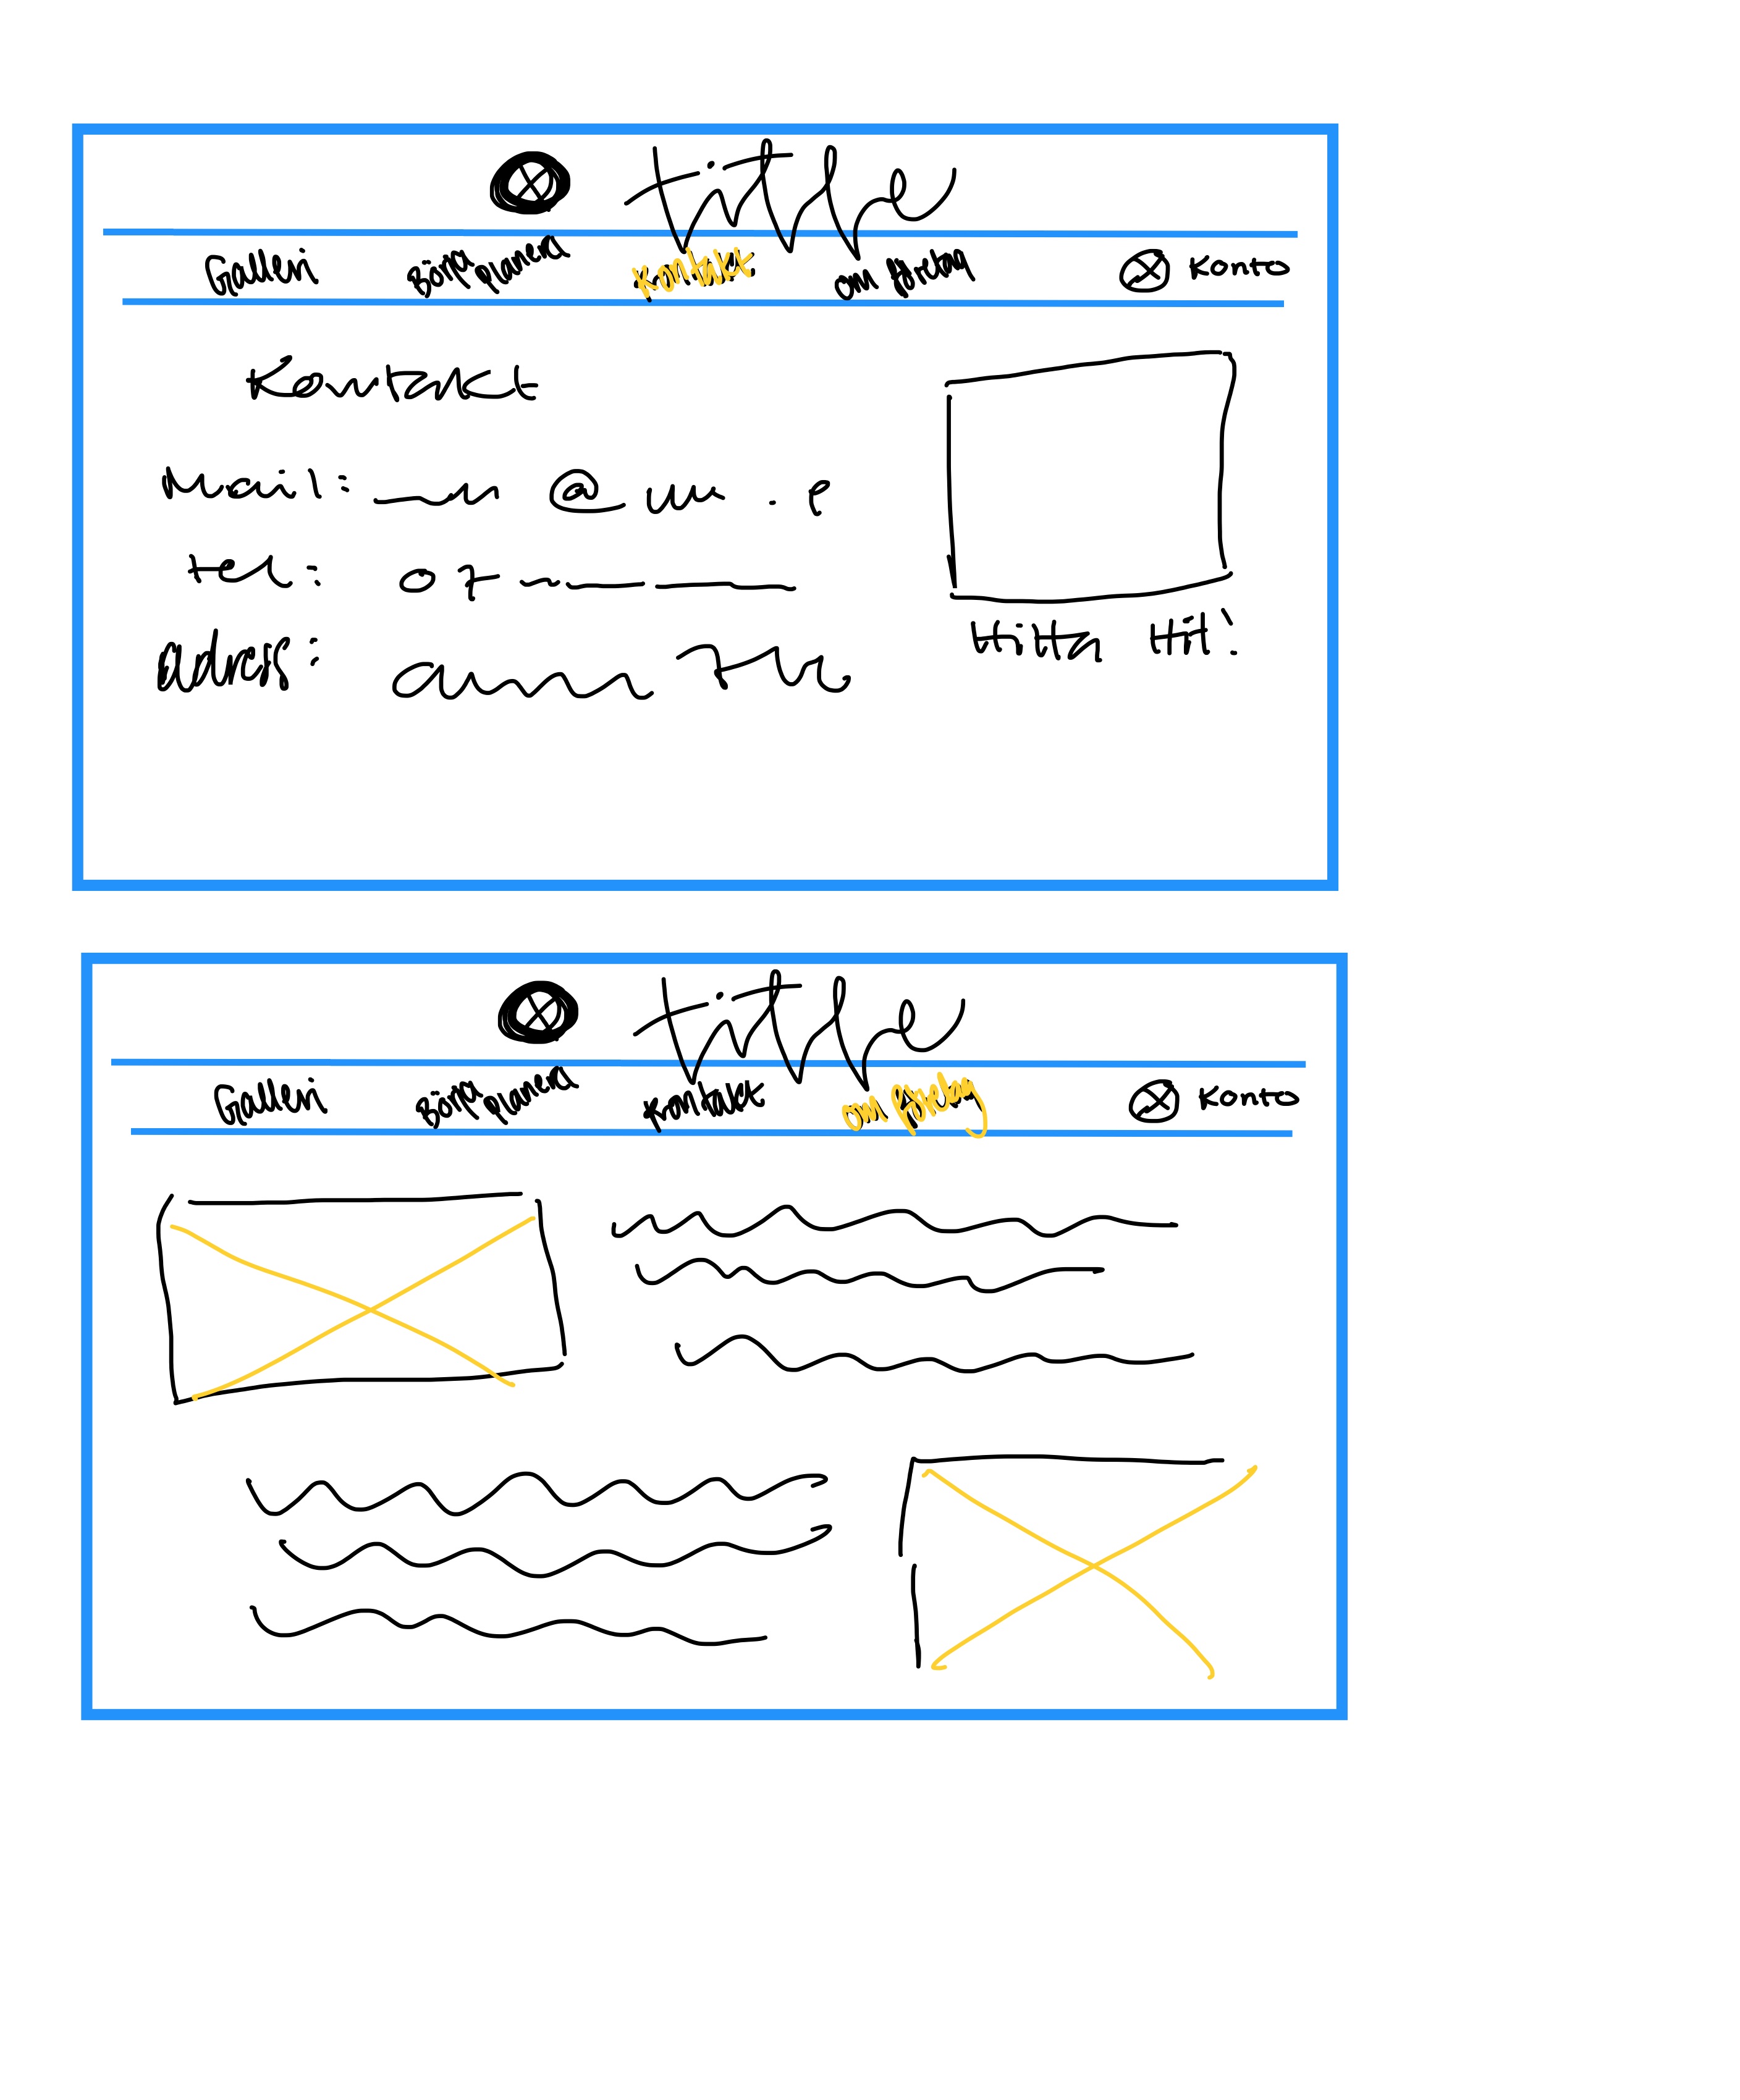 title
Galleri Börja planera Kontakt om företag Konto
Kontakt
Mail: @
tel: 07
Adress:
Hitta Hit:
title
Galleri Börja planera Kontakt om företag Konto